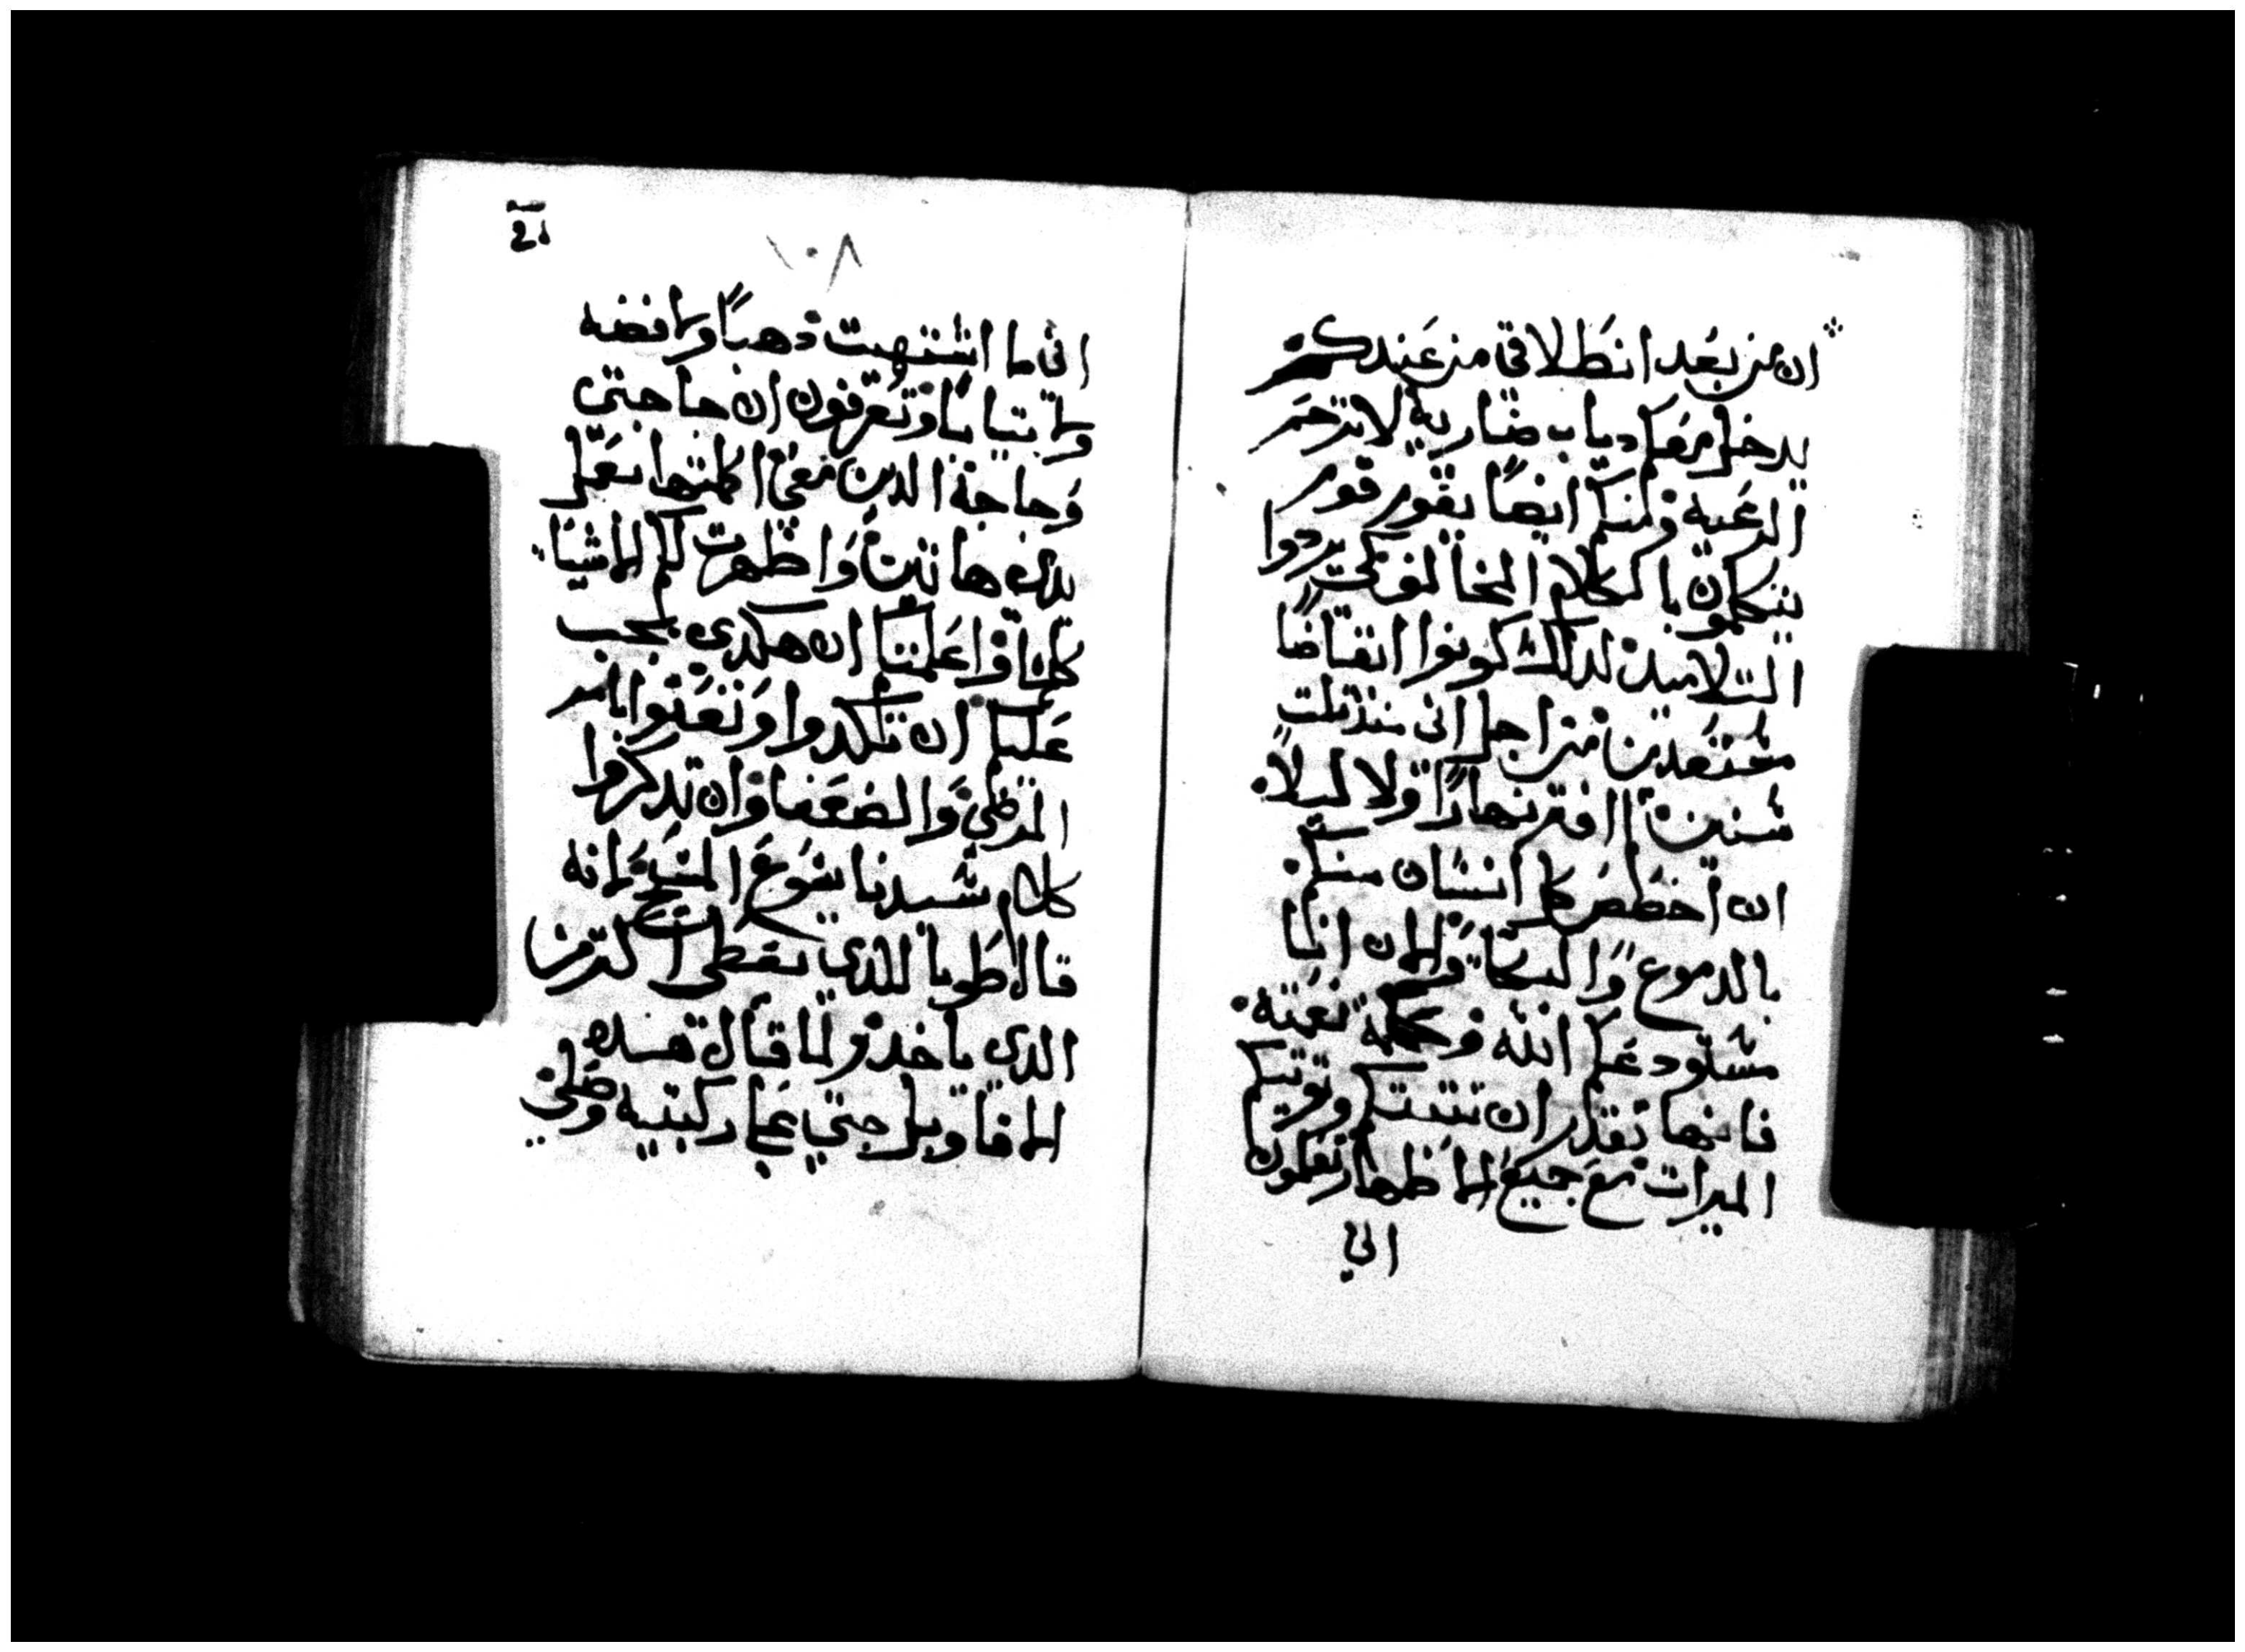 ان من بعد انطلاقي من عندكم
يدخل معكم دياب ضاريه لا ترحم
الرعيه ومنكم ايضًا يقوم قوم
يتكلمون بالكلام المخالف كي يردوا
التلاميذ لذلك كونوا ايقاضًا
معتقدين من اجل اني منذ تلت
سنين لا افتر نهارًا ولا ليلاً
ان اخطص كل انسان منكم
بالدموع والبكا والان انا
مستودعكم الله وكلمة نعمته
فانها تقدر ان تتبتكم وتوتيكم
الميرات مع جميع الاظهار تعلمون
اني
١٠٨
اني ما اشتهيت ذهبًا ولا فضه
ولا تيابًا وتعرفون ان حاجتي
وحاجة الدين معي اكلمتها بعمل
يدي هاتين واظهرت لكم الاشيا
كلها واعلمتكم ان هكدي يجب
عليكم ان تكدوا وتعتنوا بامر
المرضي والضعفا وان تدكروا
كلام سيدنا يسوع المسيح لانه
قال طوبا للذي يعطي اكتر من
الدي ياخد ولما قال هده
الاقاويل جتي علي ركبتيه وصلي